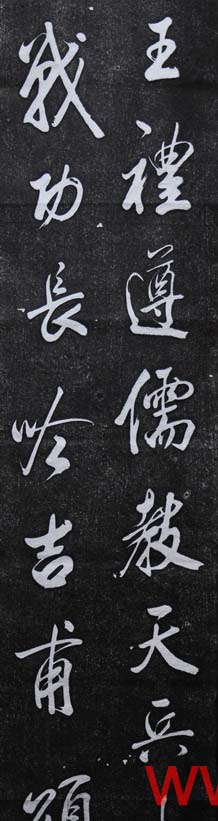 王禮遵儒教天兵
戰功長吟吉甫頌
W